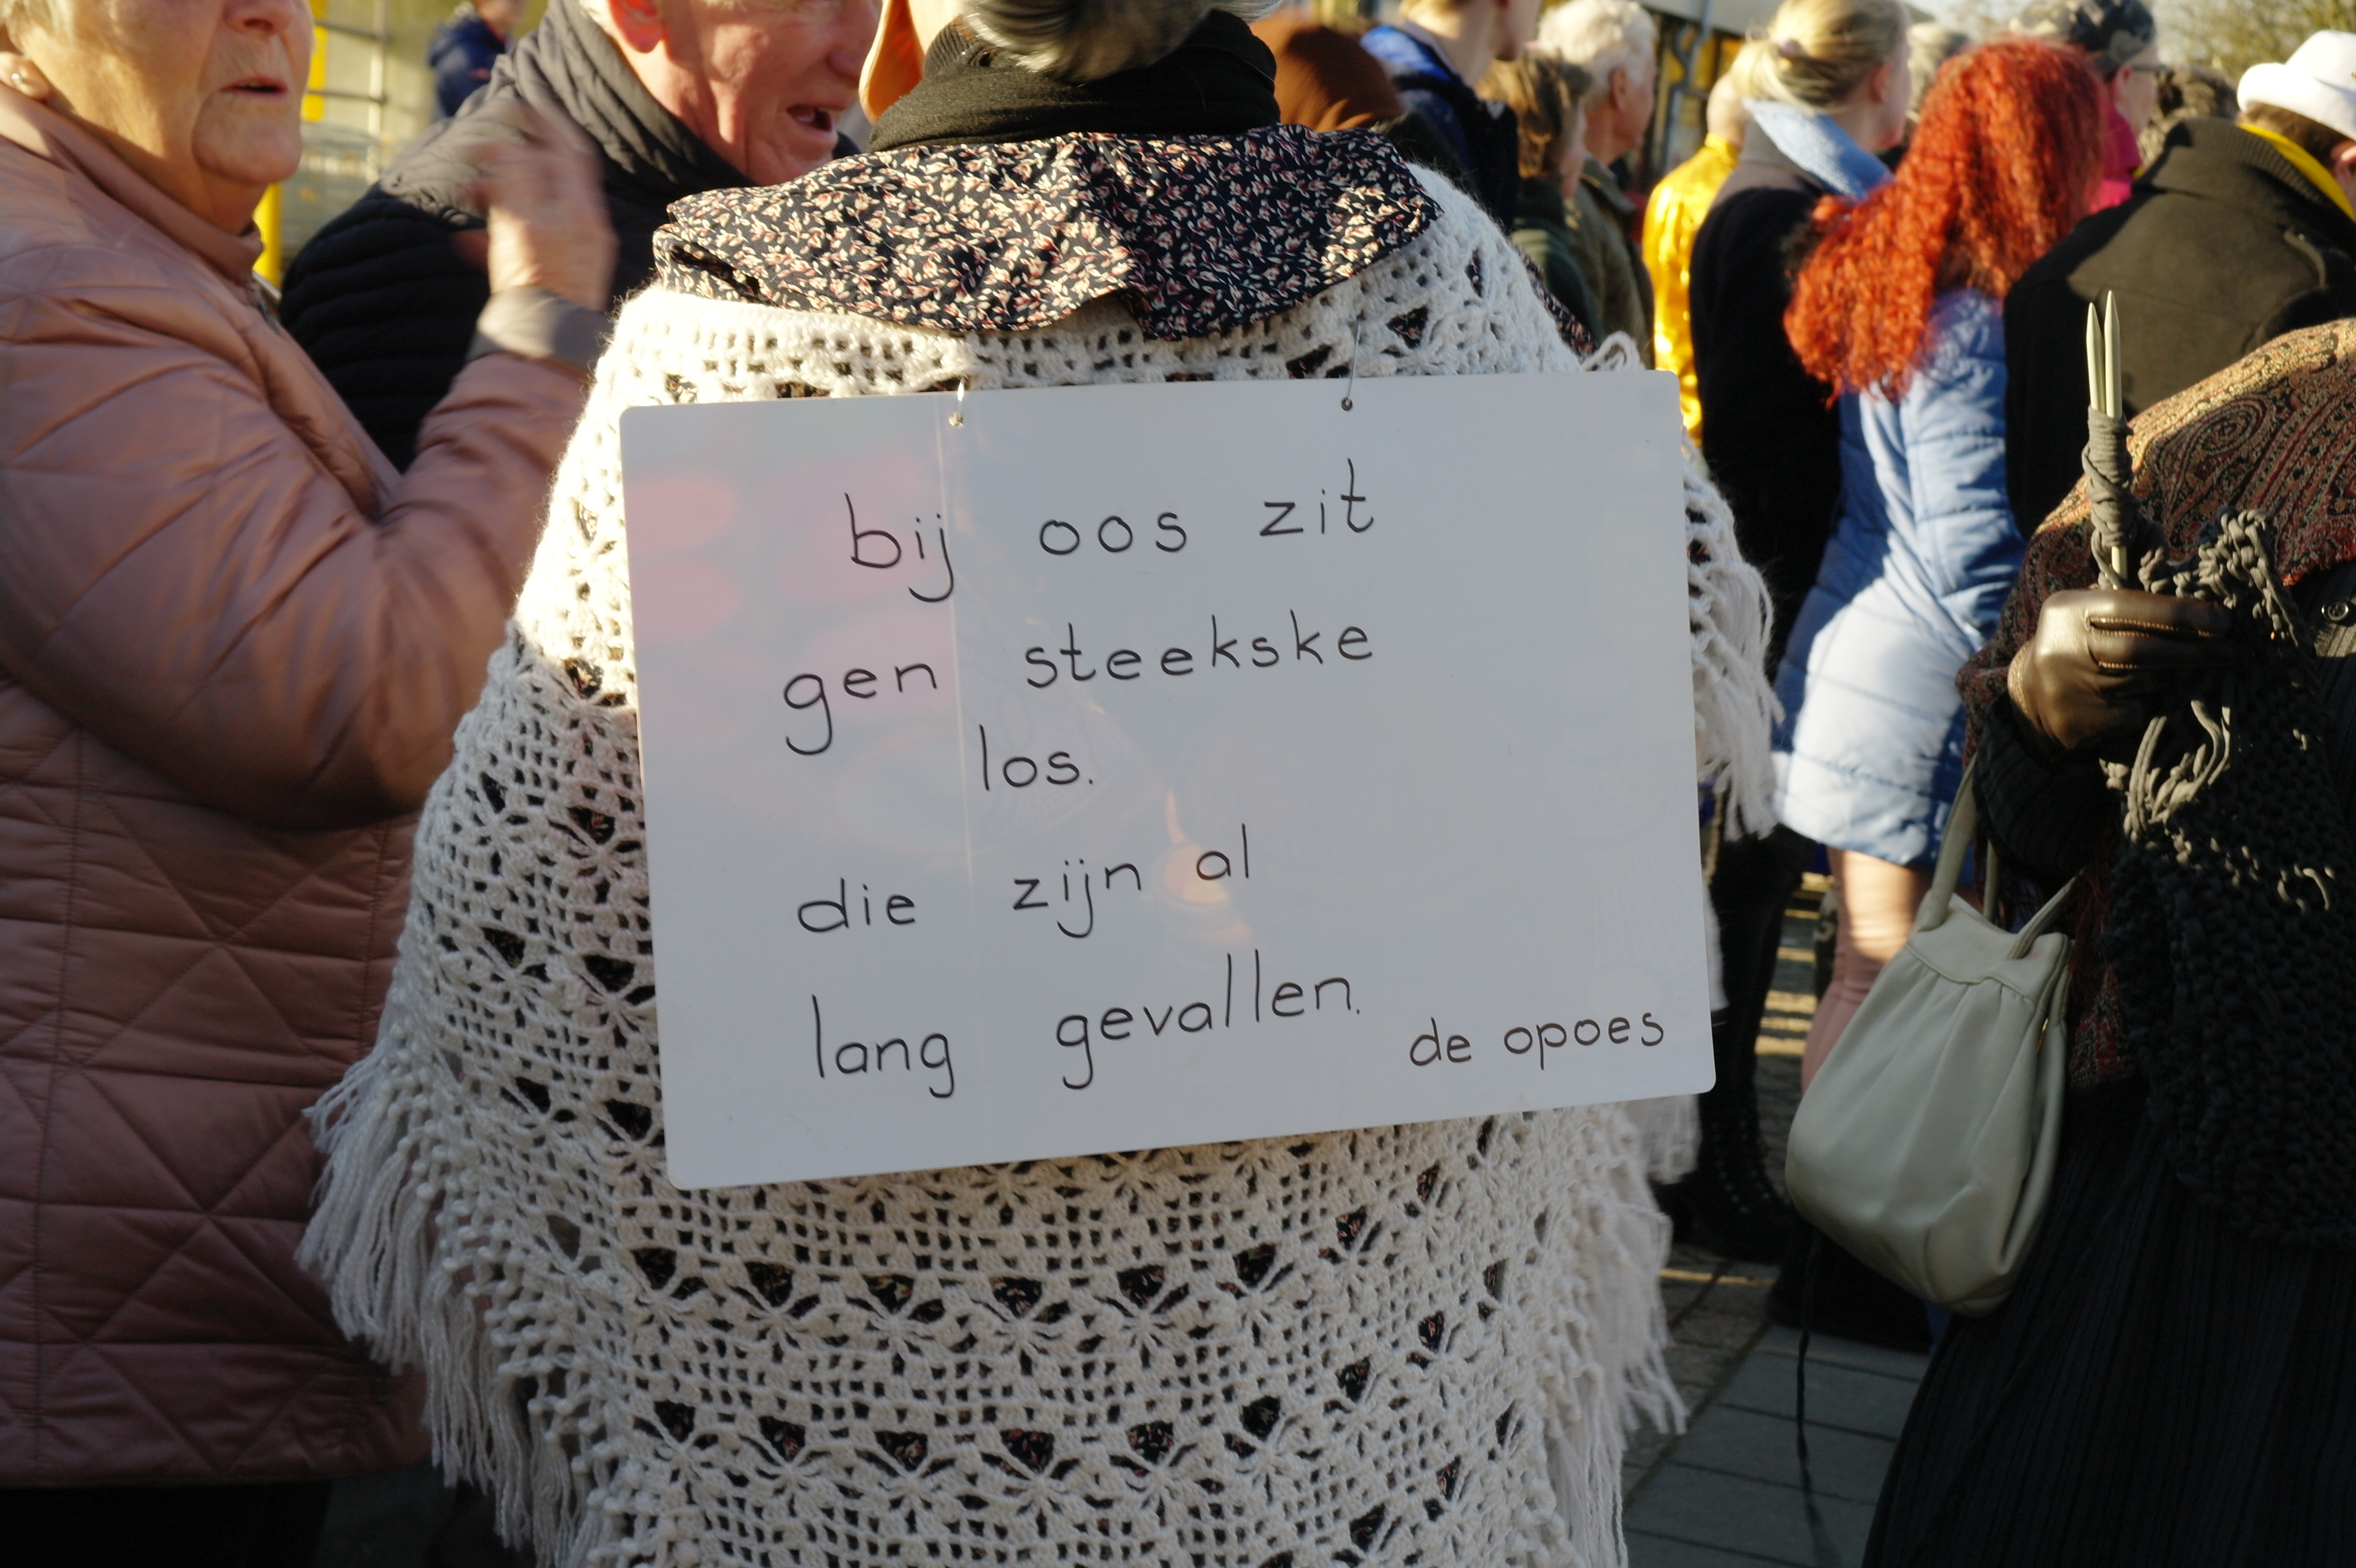 bij oos zit
gen steekske
los.
die zijn al
lang gevallen.
de opoes